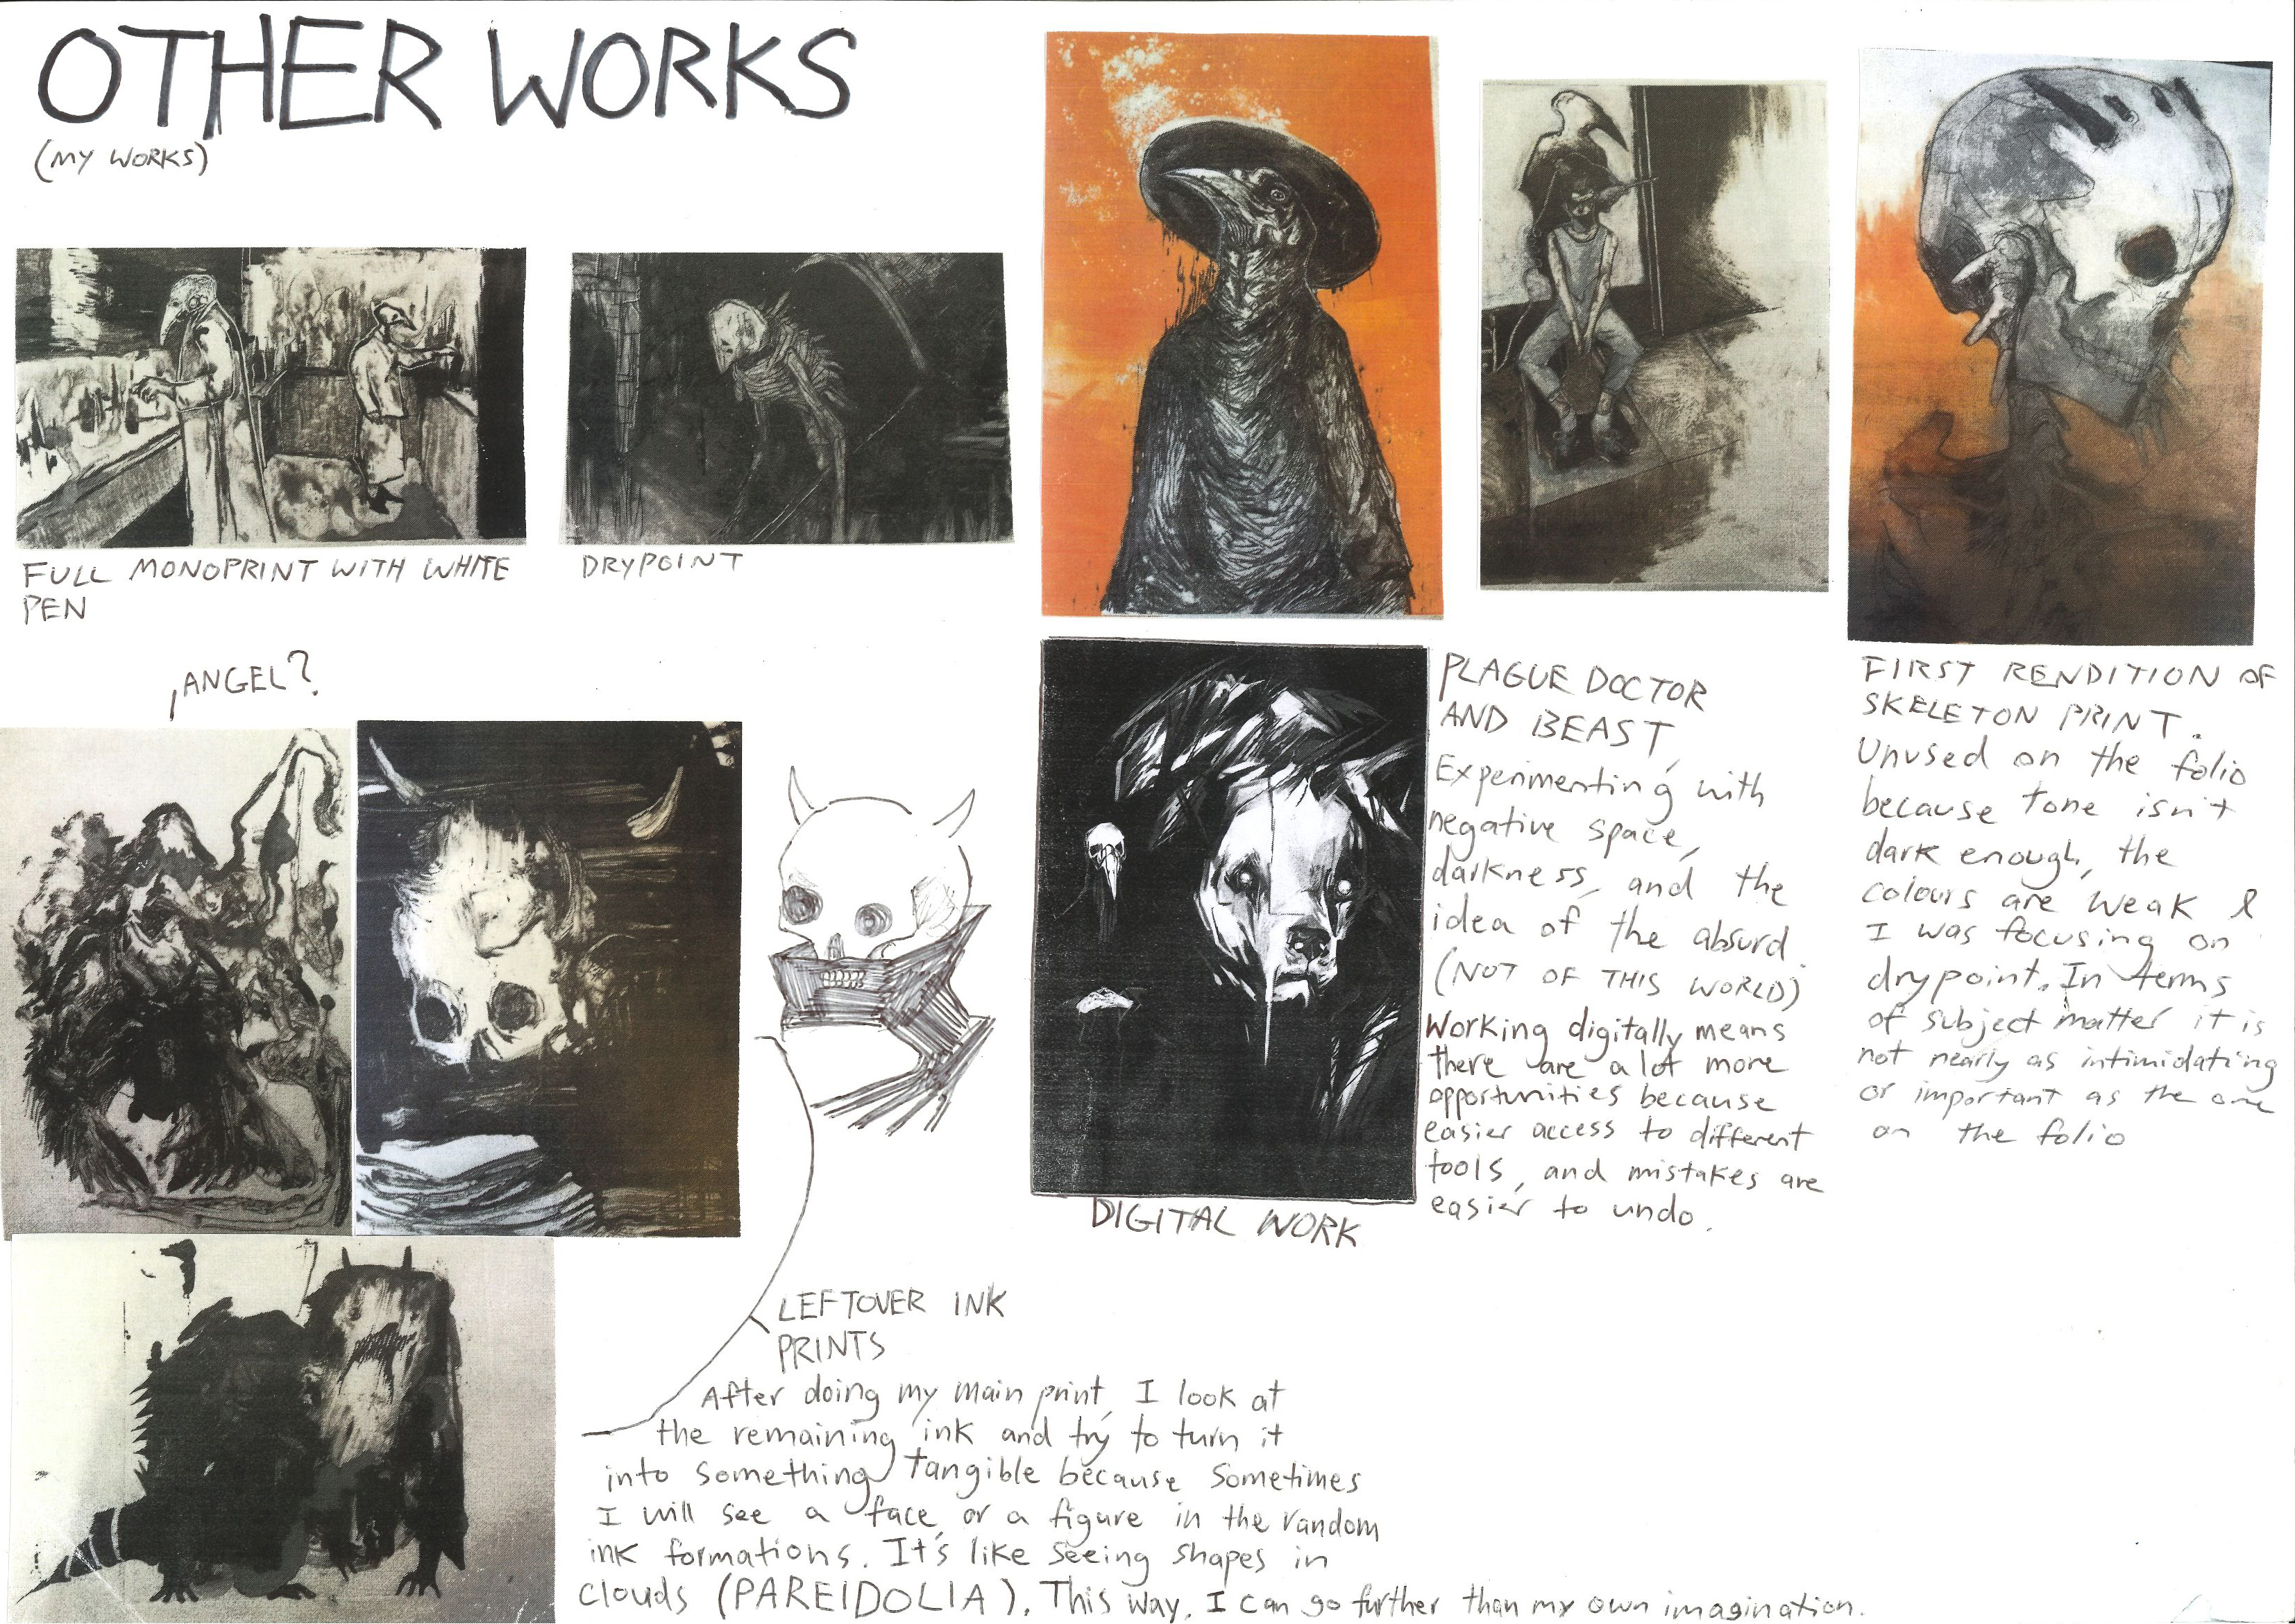 OTHER WORKS
(MY WORKS)
FULL MONOPRINT WITH WHITE
PEN
DRYPOINT
ANGEL?
PLAGUE DOCTOR
AND BEAST
Experimenting with
negative space,
darkness, and the
idea of the absurd.
(NOT OF THIS WORLD)
Working digitally means
there are a lot more
opportunities because
easier access to different
tools, and mistakes are
easier to undo.
DIGITAL WORK
FIRST RENDITION OF
SKELETON PRINT.
Unused on the folio
because tone isn't
dark enough, the
colours are weak &
I was focusing on
drypoint. In terms
of subject matter it is
not nearly as intimidating
or important as the one
on the folio
LEFTOVER INK
PRINTS
After doing my main print, I look at
the remaining ink and try to turn it
into something tangible because sometimes
I will see a face, or a figure in the random
ink formations. It's like seeing shapes in
clouds (PAREIDOLIA). This way, I can go further than my own imagination.